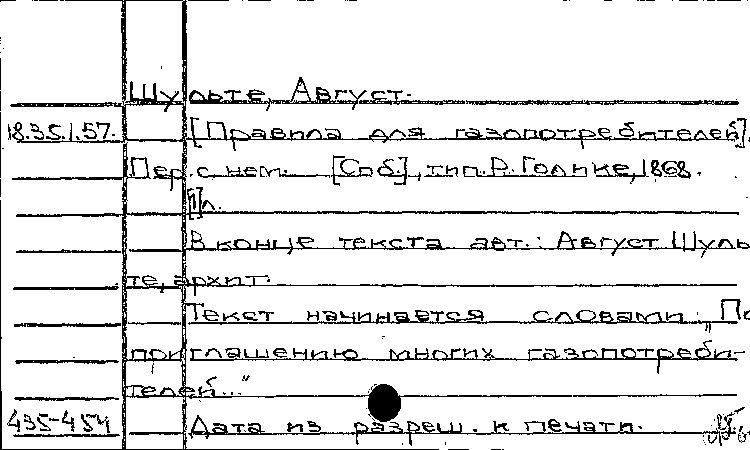 Шульте, Август.
18.35.1.57. [Правила для газопотребителей].
Пер. с нем. [Спб.], тип. Р. Голике, 1868.
[1]л.
В конце текста авт.: Август Шуль
те, архит.
Текст начинается словами: „По
приглашению многих газопотреби-
телей..."
435-454 Дата из разреш. к печати.